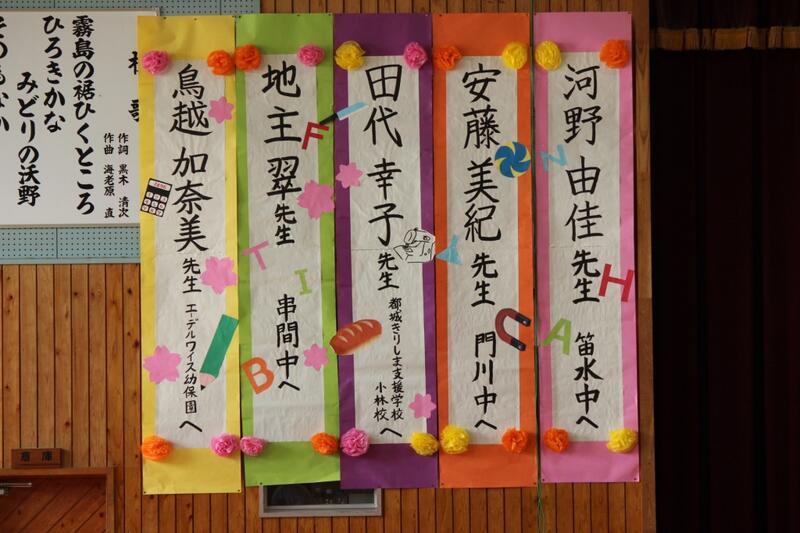 河野由佳先生 笛水中へ
安藤美紀先生 門川中へ
田代幸子先生 都城きりしま支援学校
小林校へ
地主翠先生 串間中へ
鳥越加奈美先生 エーデルワイス幼保園へ
F
N
T
I
H
A
B
作詞 黒木 清次
作曲 海老原 直
霧島の裾ひくところ
ひろきかな
みどりの沃野